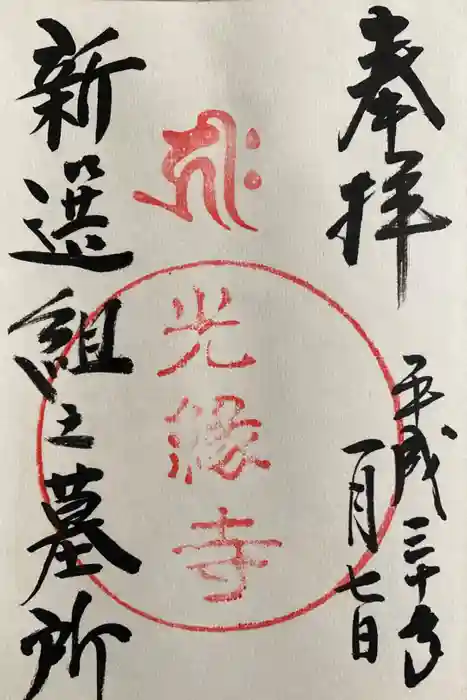 奉拝
平成三十年
一月七日
光縁寺
新選組之墓所